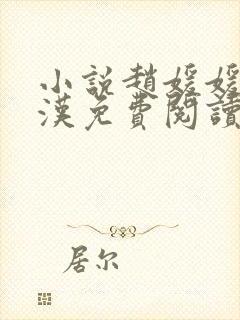 小說趙媛媛
漢免費閱讀
居尔